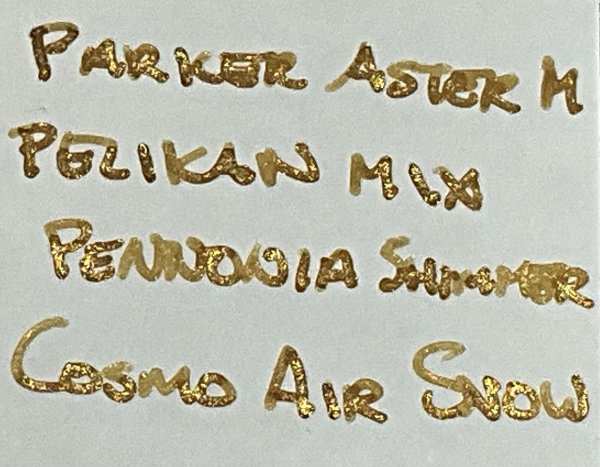 PARKER ASTER M
PELIKAN MIX
PENNONIA SHIMMER
COSMO AIR SNOW